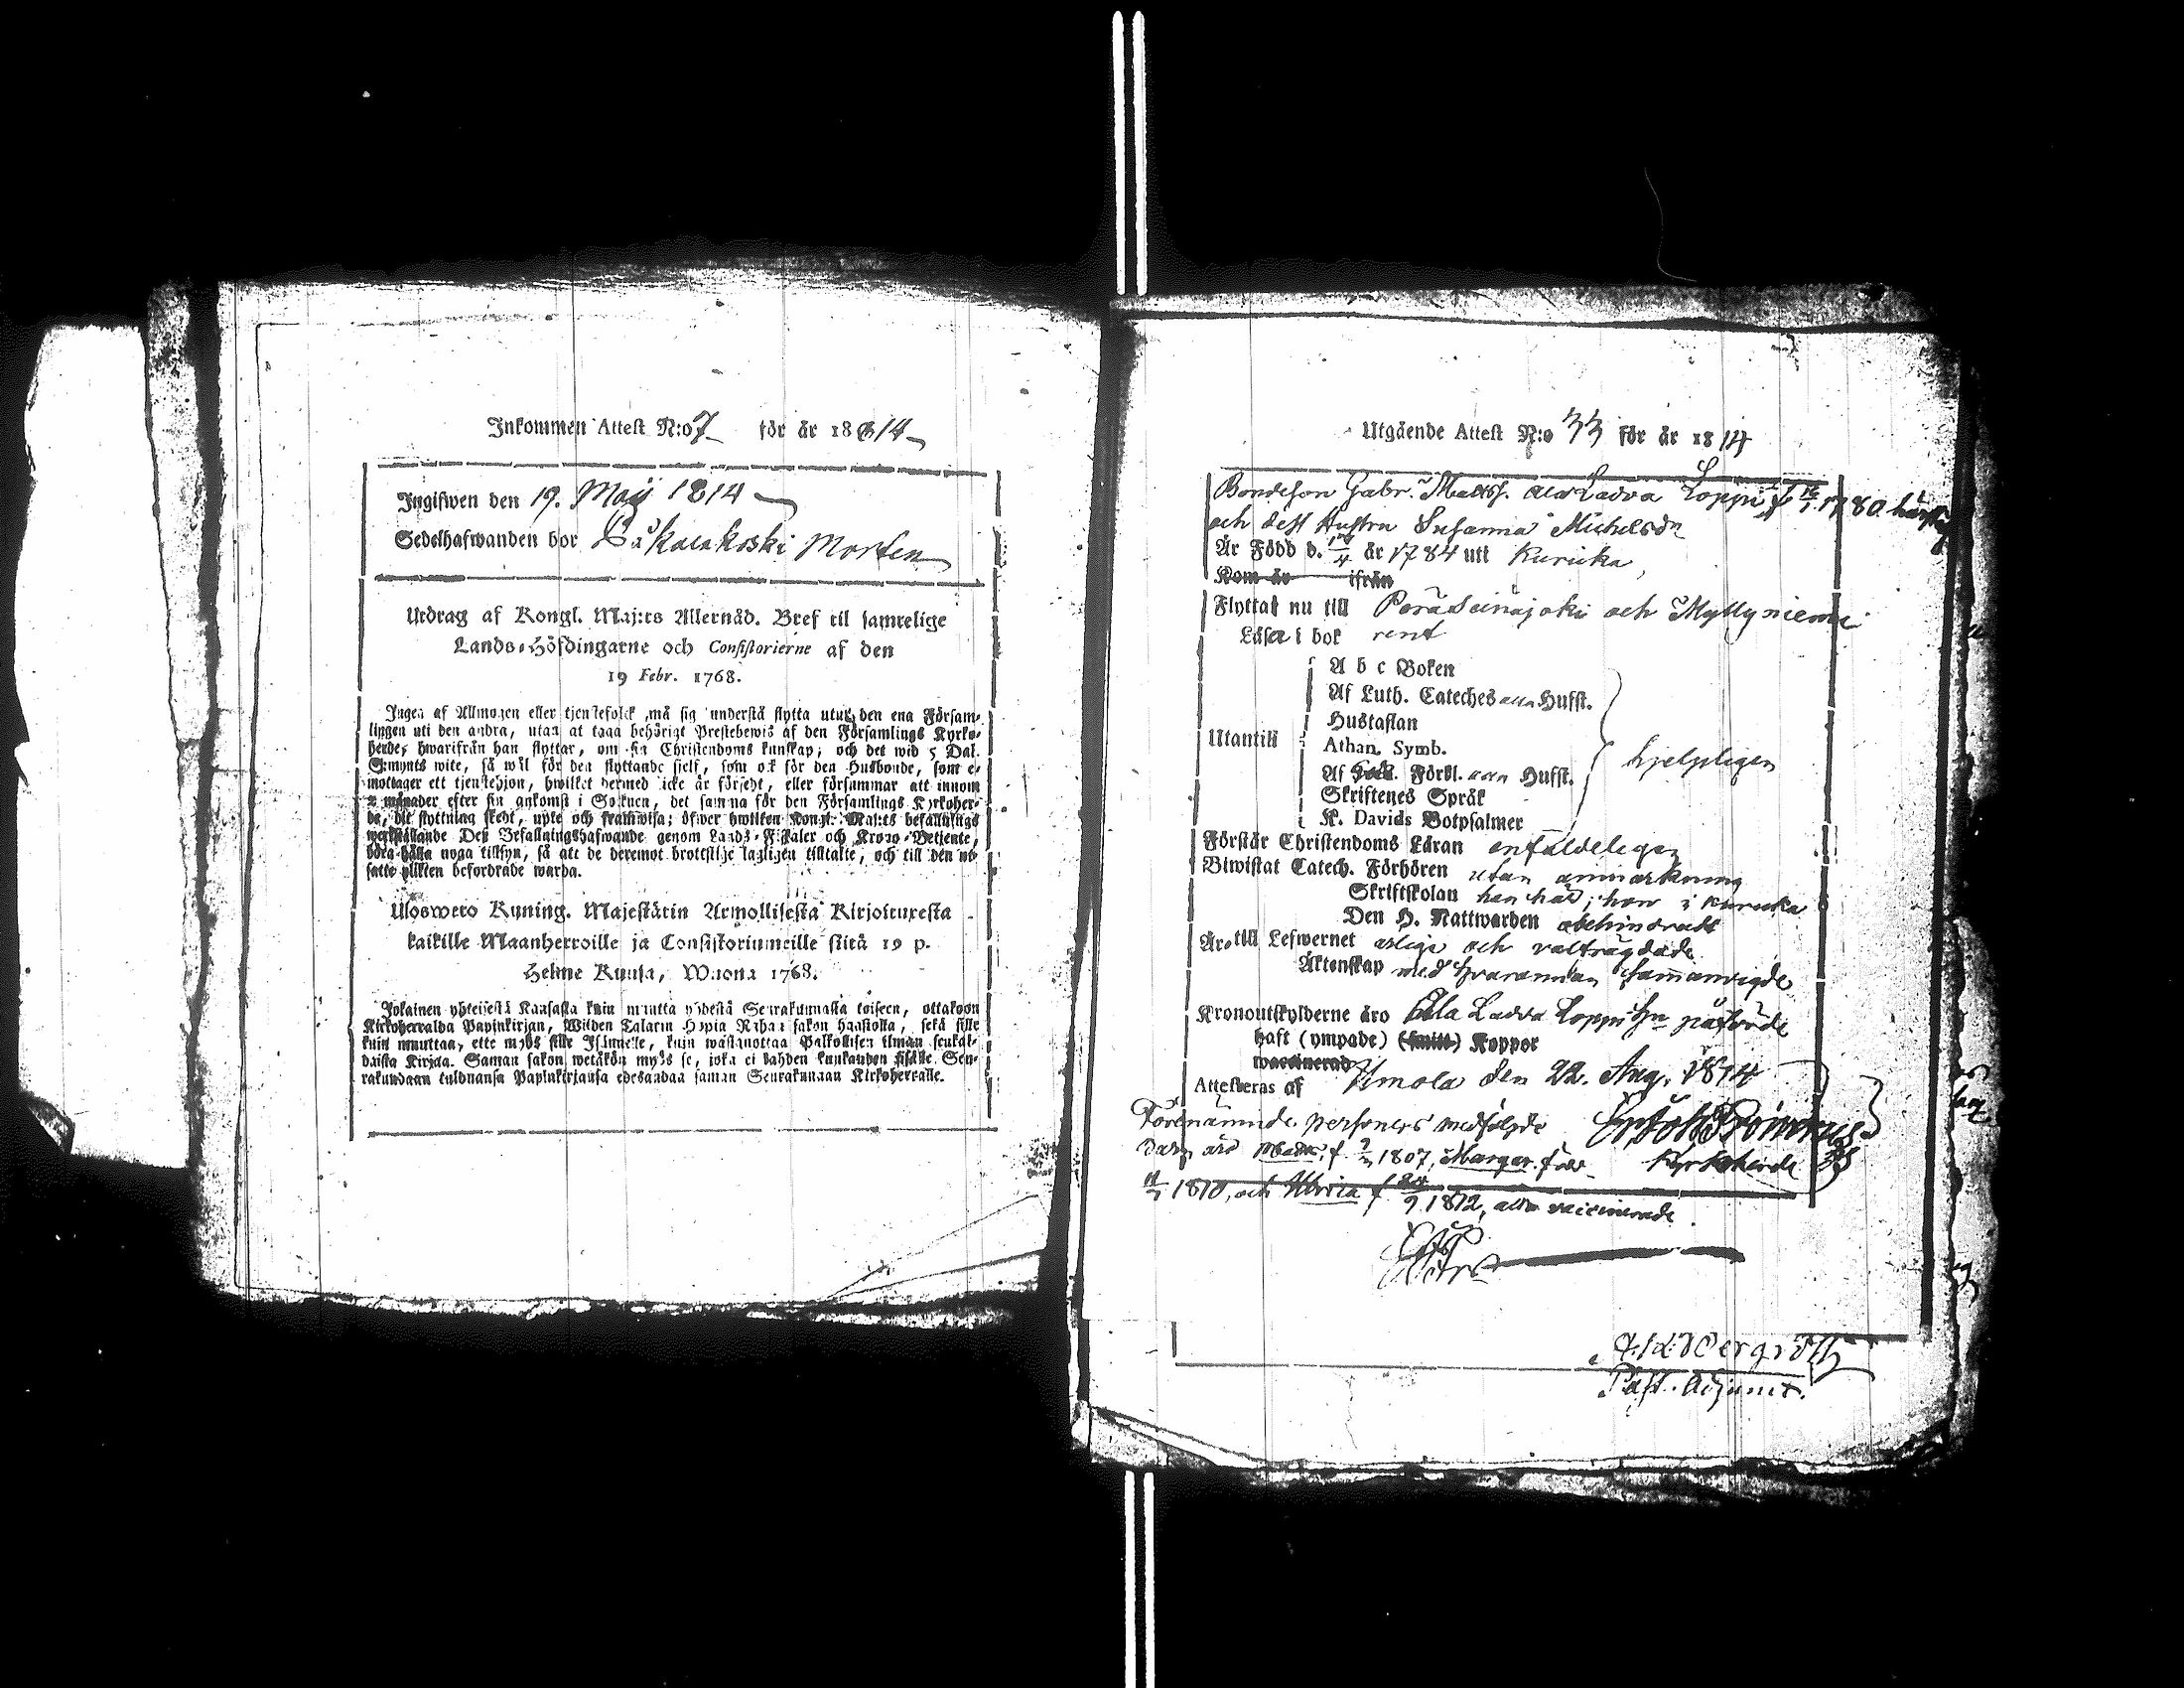 Inkommen Attest N:o 7 för år 1814
Ingifwen den 19. Maij 1814
Sedelhafwanden bor Mårten
Utdrag af Kongl. Maj:ts Allernåd. Bref til samtelige
Lands-Höfdingarne och Consistorierne af den
19 Febr. 1768.
Ingen af Allmogen eller tjenstefolck må sig understå flytta utur den ena Försam-
lingen uti den andra, utan at taga behörigt Prestebewis af den Församlings Kyrko-
herde, hwarifrån han flyttar, om sin Christendoms kunskap; och det wid 5 Dal.
S:mynts wite, så wäl för den flyttande sjelf, som ock för den Husbonde, som e-
mottager ett tjenstehjon, hwilket hermed icke är försedt, eller försummar att innom
2 månader efter sin ankomst i Soknen, det samma för den Församlings Kyrkoher-
de, dit flyttning skedt, upte och framwisa; öfwer hwilken Kongl. Maj:ts befallnings
werkställande Des Befallningshafwande genom Lands-Fiskaler och Krono-Betjente,
böra hålla noga tillsyn, så att de deremot brottslige lagligen tilltalte, och till den ut-
satte plikten befordrade warda.
Ulosweto Kuning. Majestätin Armollisesta Kirjoituxesta
kaikille Maanherroille ja Consistoriumeille siitä 19 p.
Helme Kuusa, Wuonna 1768.
Jokainen yhteisestä Kansasta kuin muutta yhdestä Seurakunnasta toiseen, ottakoon
Kirkoherralda Papinkirjan, Wiiden Talarin Hopia Rahan sakon haastolla, sekä sille
kuin muuttaa, ette myös sille Isännälle, kuin wastanottaa Palkollisen ilman seukal-
daista Kirjaa. Saman sakon wetäkön myös se, joka ei kahden kuukauden sisälle Seu-
rakundaan tuldnansa Papinkirjansa edesandaa saman Seurakunnan Kirkoherralle.
Utgående Attest N:o 33 för år 1814
Bondeson Gabr. Matts. Ala Ladva Loppi f. 1780 härstäd
och dess Hustru Susanna Michelsdr
Är Född d. år 1784 uti Kuricka,
Kom år ifrån
Flytta nu till Peräseinäjoki och Myllyniemi
Läsa i bok rent
A b c Boken
Af Luth. Cateches utan Husst.
Hustaflan
Utantill
Athan. Symb.
hjelpligen
Af Förkl. utan Husst.
Skriftenes Språk
K. Davids Botpsalmer
Förstår Christendoms Läran enfaldeligen
Biwistat Catech. Förhören utan anmärkning
Skriftskolan han här, hon i Kuricka
Den H. Nattwarden obehindradt
Äro till Lefwernet ärlige och
Äktenskap med hvarannan sammanvigde
Kronoutskylderne äro Ala Ladva Loppi påförde
haft (ympade) Koppor
waccinerad
Attesteras af Ilmola den 22. Aug. 1814
Förenämnde personers medföljde
barn äro Matts, f. 1807, Margar. född
Kyrkoherde
1810, och Ulrica f. 24/9 1812, alla vaccinerade
Past. Adjunct.